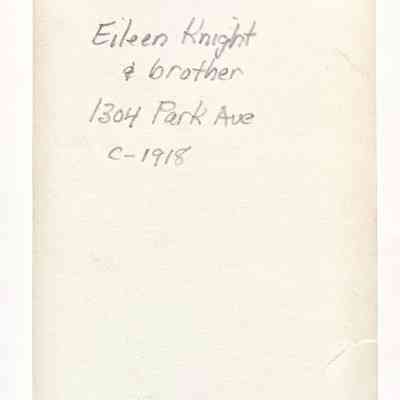 Eileen Knight
& brother
1304 Park Ave
C-1918